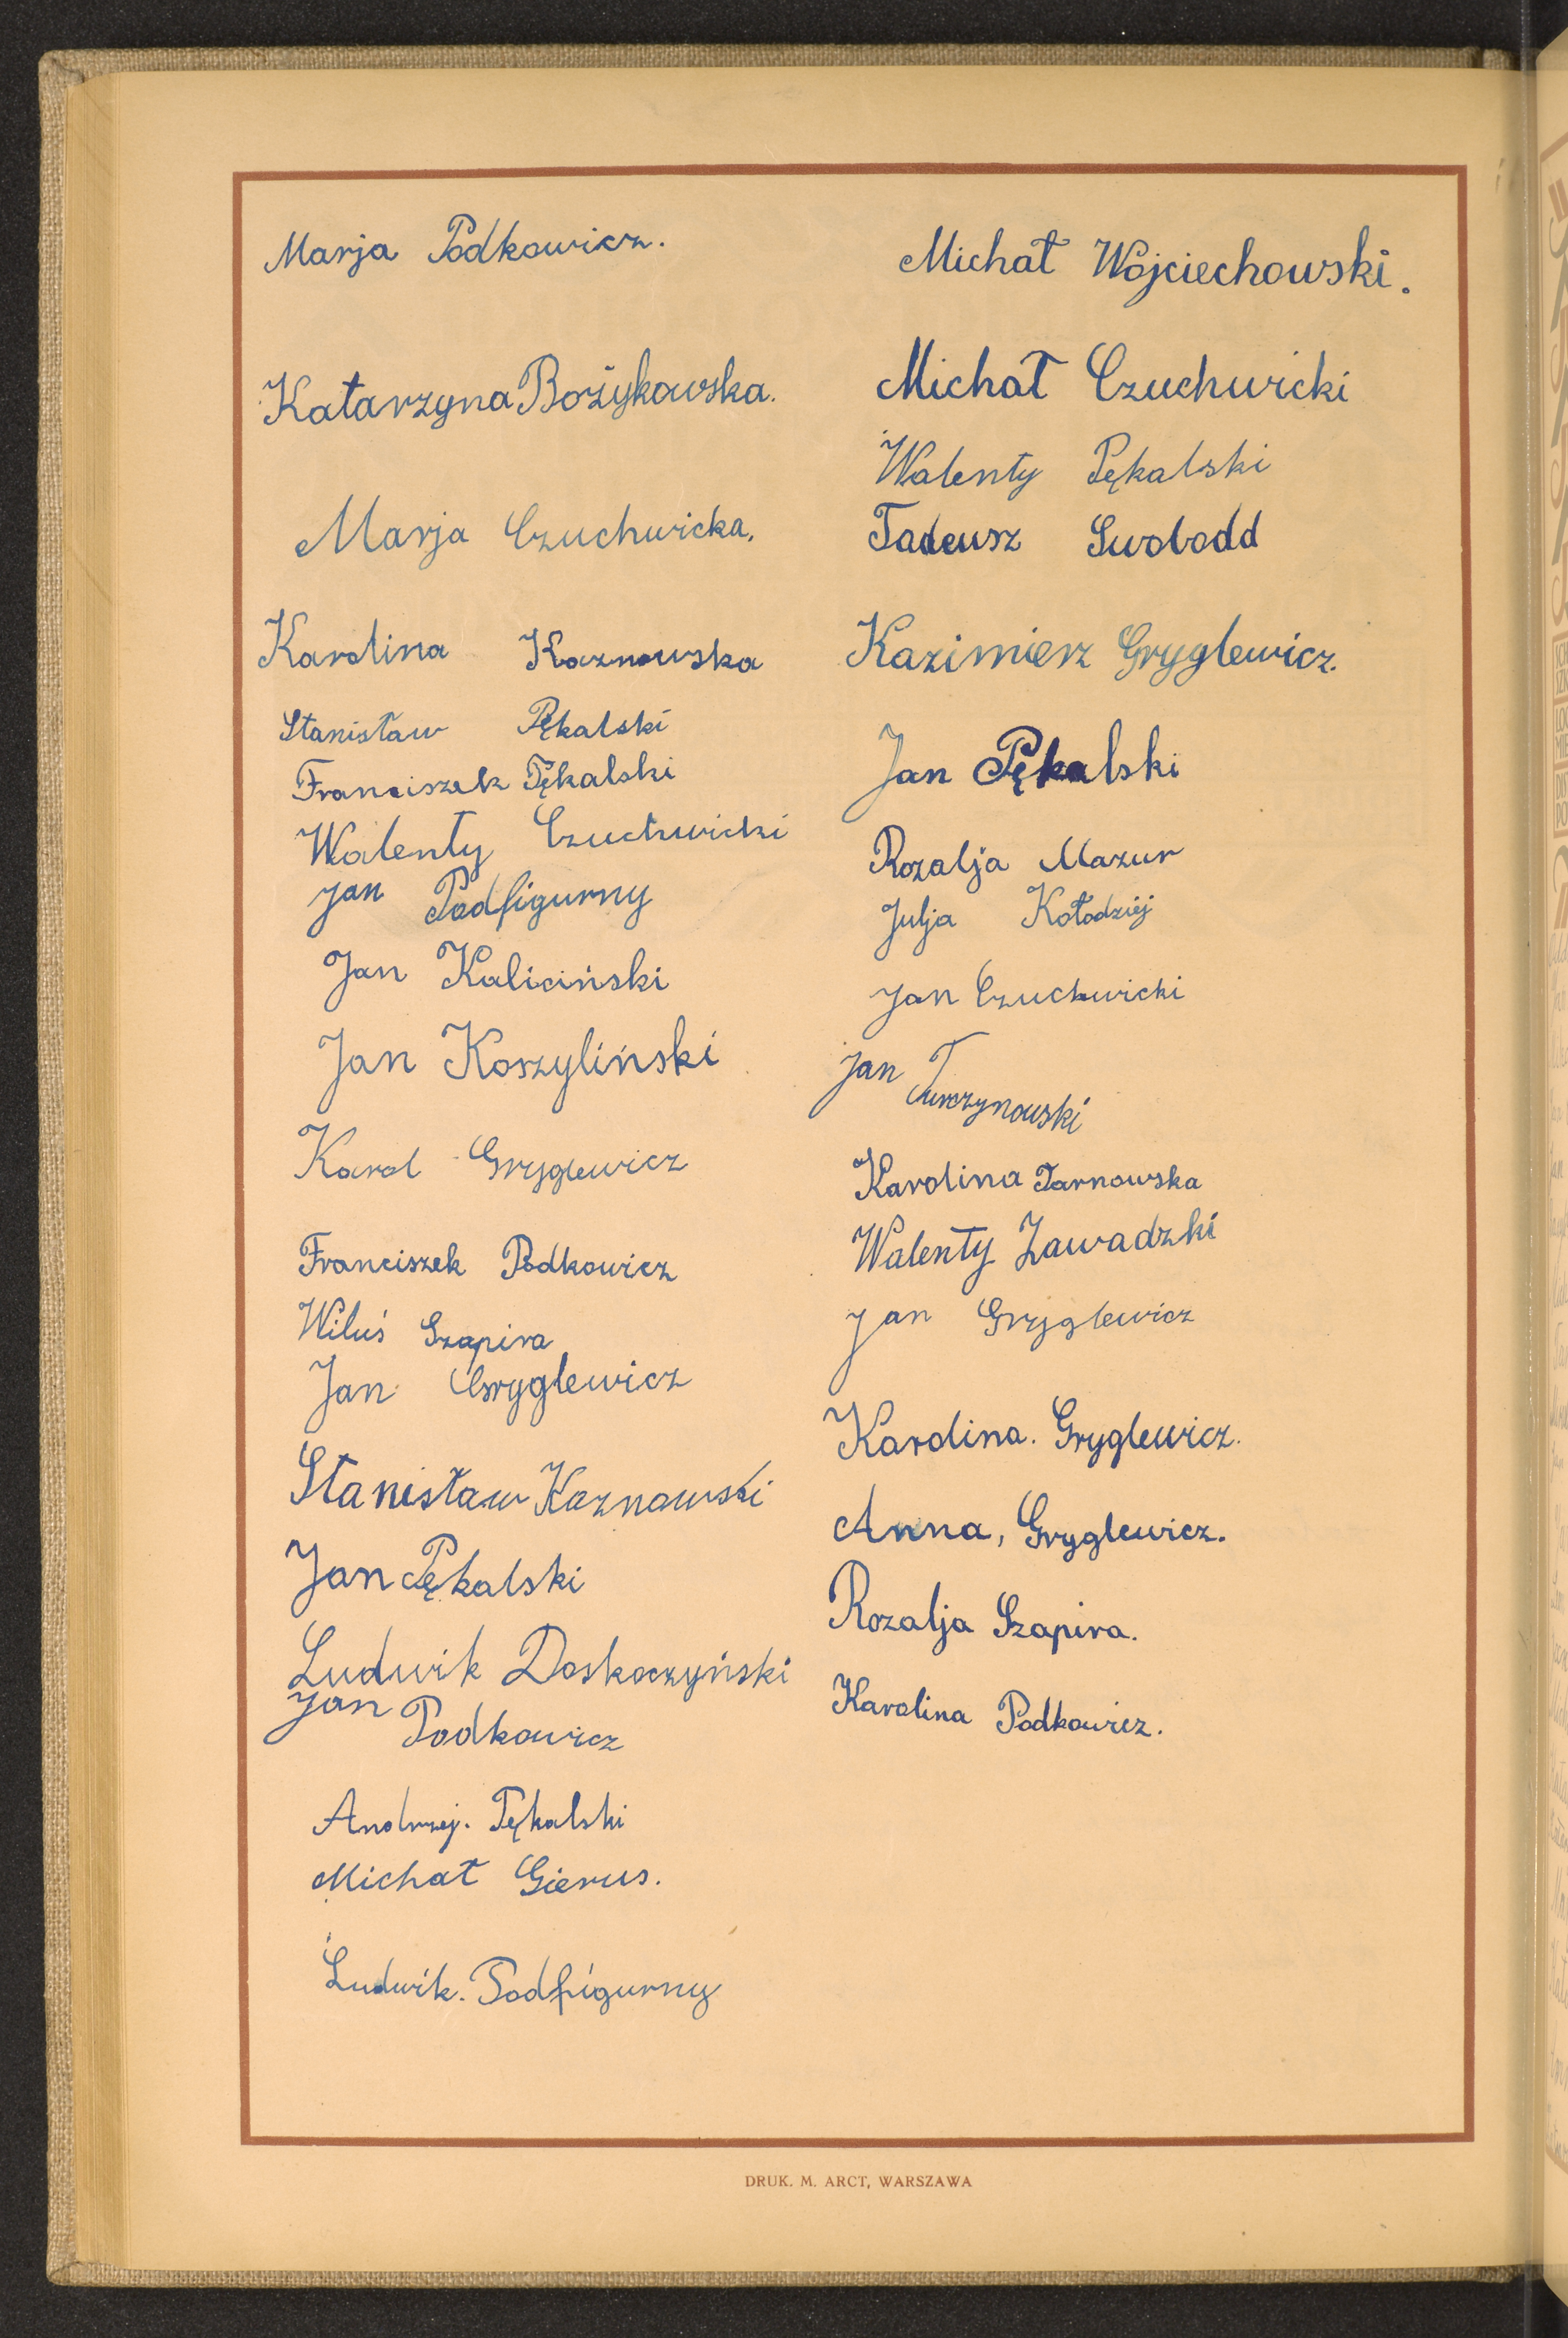 Marja Podkowicz.
Katarzyna Bożykowska.
Marja Czuchwicka.
Karolina Kaznowska
Stanisław Pękalski
Franciszek Pękalski
Walenty Czuchwicki
Jan Podfigurny
Jan Kaliciński
Jan Koszyliński
Karol Gryglewicz
Franciszek Podkowicz
Wiluś Szapira
Jan Gryglewicz
Stanisław Kaznowski
Jan Pękalski
Ludwik Doskoczyński
Jan Podkowicz
Andrzej. Pękalski
Michał Gierus.
Ludwik. Podfigurny
Michał Wojciechowski.
Michał Czuchwicki
Walenty Pękalski
Tadeusz Swobodd
Kazimierz Gryglewicz.
Jan Pękalski
Rozalja Mazur
Julja Kołodziej
Jan Czuchwicki
Jan Turczynowski
Karolina Tarnowska
Walenty Zawadzki
Jan Gryglewicz
Karolina. Gryglewicz.
Anna, Gryglewicz.
Rozalja Szapira.
Karolina Podkowicz.
DRUK. M. ARCT, WARSZAWA